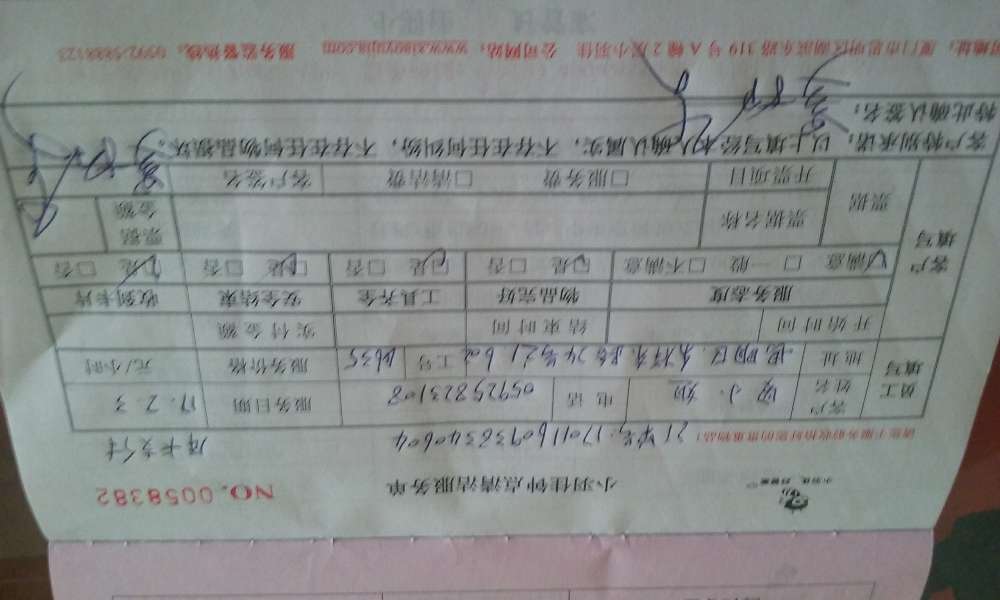 小羽佳钟点清洁服务单
NO.0058382
请您于服务前收拾好您的贵重物品!
订单号:1701160938340604
员工填写
客户姓名
电话 05925823108
服务日期 17.2.3
地址
工号
服务价格
元/小时
开始时间
结束时间
实付金额
客户填写
服务态度
物品完好
工具齐全
安全结束
收到卡片
☑满意 □一般 □不满意
☑是 □否
☑是 □否
☑是 □否
☑是 □否
票据
票据名称
票据金额
开票项目
□服务费 □清洁费
客户签名
客户特别承诺:以上填写经本人确认属实,不存在任何纠纷,不存在任何物品损坏。
特此确认签名:
厦门市思明区湖滨东路319号A幢2层小羽佳 公司网站:www.xiaoyujia.com 服务监督热线:0592-5888123